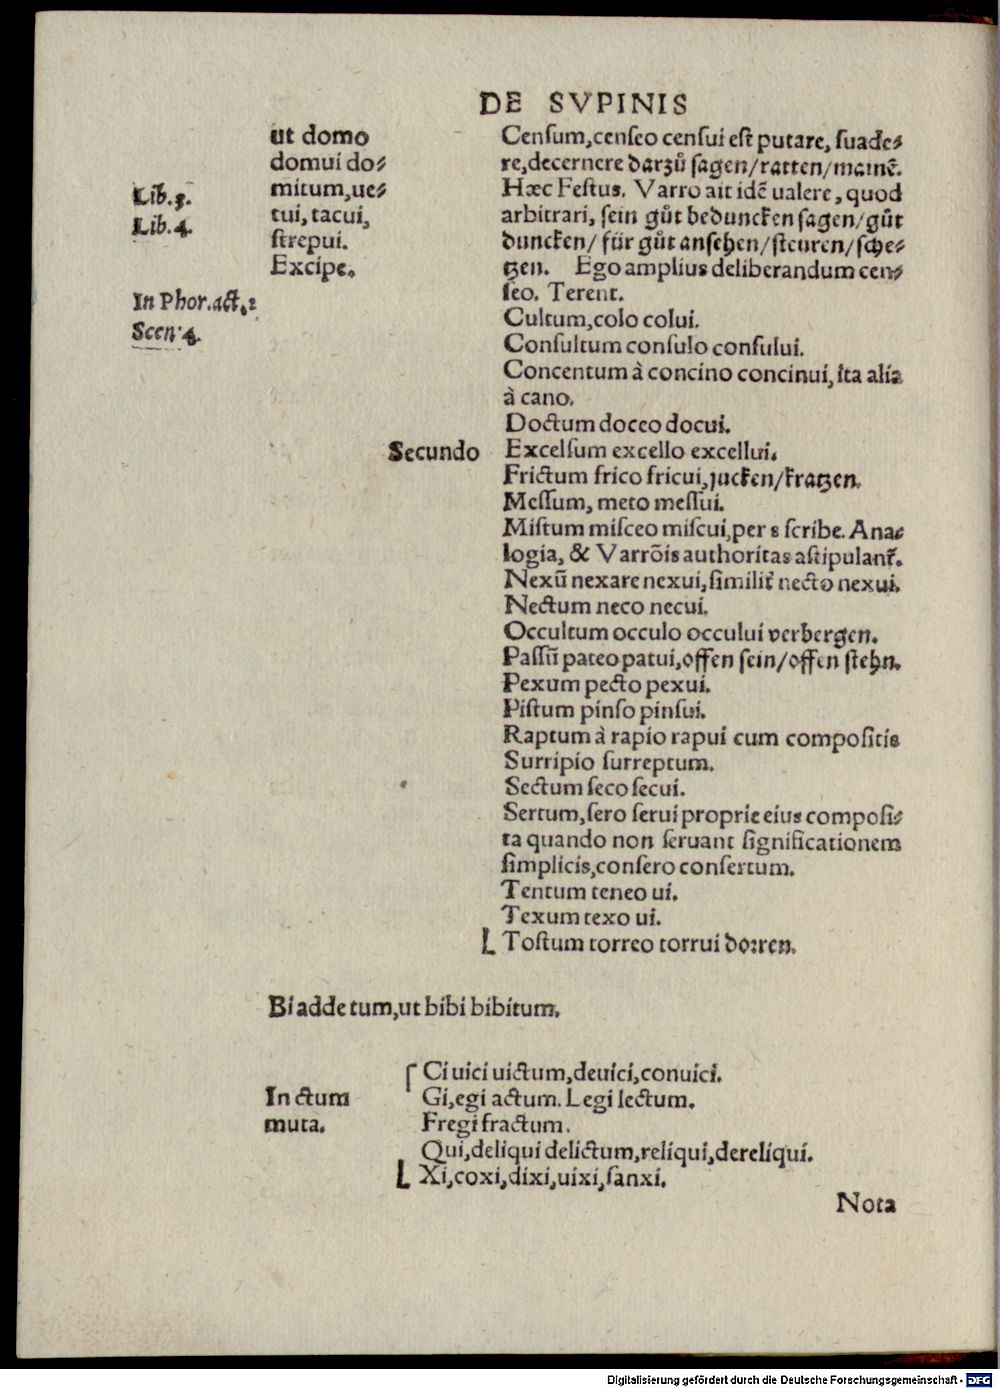 DE SVPINIS
ut domo
domui do⸗
mitum,ue⸗
tui, tacui,
ſtrepui.
Excipe.
Lib.5.
Lib.4.
In Phor.act.2
Scen:4.
Secundo
Cenſum,cenſeo cenſui eſt putare, ſuade⸗
re,decernere darzů ſagen/ratten/mainē.
Hæc Feſtus. Varro ait idē ualere, quod
arbitrari, ſein gůt beduncken ſagen/gůt
duncken/ für gůt anſehen/ſteuren/ſche⸗
tzen. Ego amplius deliberandum cen⸗
ſeo. Terent.
Cultum,colo colui.
Conſultum conſulo conſului.
Concentum à concino concinui, ita alia
à cano.
Doctum doceo docui.
Excelſum excello excellui.
Frictum frico fricui,jucken/kratzen.
Meſſum, meto meſſui.
Miſtum miſceo miſcui,per s ſcribe. Ana⸗
logia, & Varrōis authoritas aſtipulant᷑.
Nexū nexare nexui, ſimilit᷑ necto nexui.
Nectum neco necui.
Occultum occulo occului verbergen.
Paſſū pateo patui,offen ſein/offen ſtehn.
Pexum pecto pexui.
Piſtum pinſo pinſui.
Raptum à rapio rapui cum compoſitis
Surripio ſurreptum.
Sectum ſeco ſecui.
Sertum,ſero ſerui proprie eius compoſi⸗
ta quando non ſeruant ſignificationem
ſimplicis,conſero conſertum.
Tentum teneo ui.
Texum texo ui.
Toſtum torreo torrui dorren.
Bi adde tum,ut bibi bibitum.
In ctum
muta.
Ci uici uictum,deuici,conuici.
Gi,egi actum. Legi lectum.
Fregi fractum.
Qui,deliqui delictum,reliqui,dereliqui.
Xi,coxi,dixi,uixi,ſanxi.
Nota
Digitalisierung gefördert durch die Deutsche Forschungsgemeinschaft - DFG